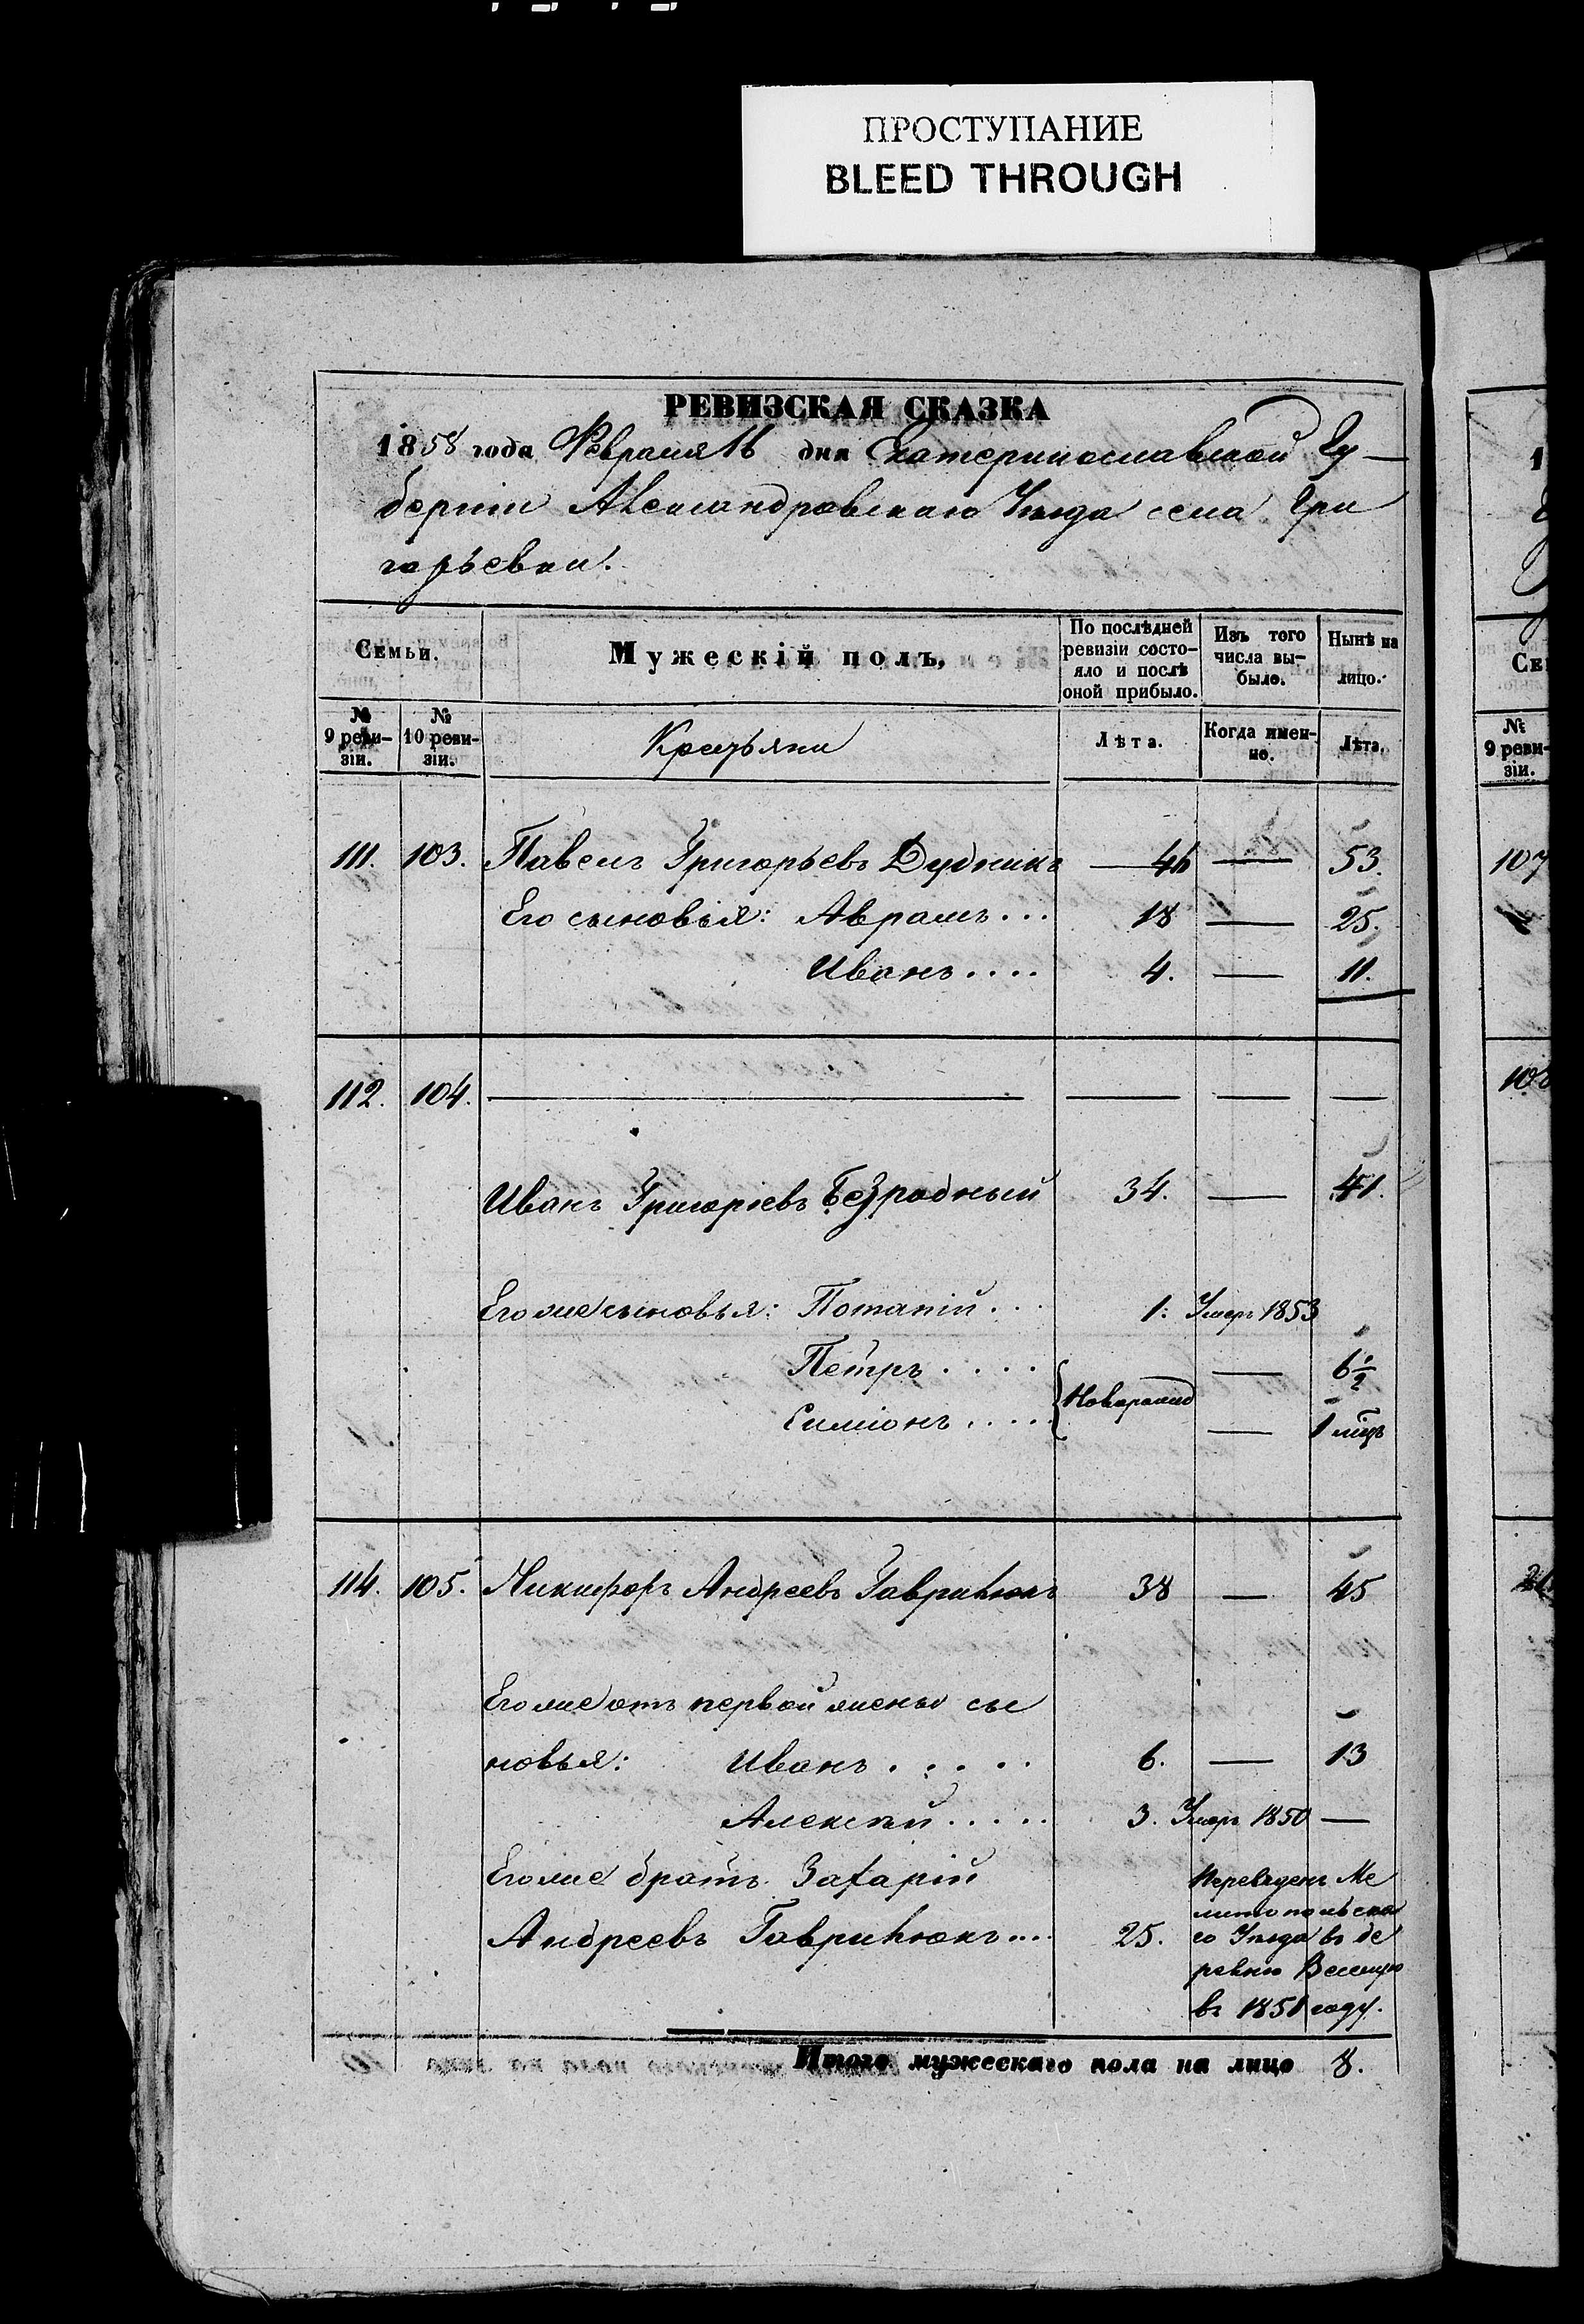 ПРОСТУПАНИЕ
BLEED THROUGH
РЕВИЗСКАЯ СКАЗКА
1858 года Февраля 16 дня Екатеринославской Гу—
берніи Александровскаго Уѣзда села Гри
горьевки.
Семьи.
Мужескій полъ,
По послѣдней ревизіи состо-яло и послѣ оной прибыло.
Изъ того числа вы-было.
Нынѣ на лицо.
№ 9 реви-зіи.
№ 10 реви-зіи.
Крестьяни
Лѣта.
Когда имен-но.
Лѣта.
111. 103. Павелъ Григорьевъ Дудникъ — 46 — 53.
Его сыновья: Аврамъ... 18 — 25.
Иванъ.... 4. — 11.
112. 104. — — — —
Иванъ Григоріевъ Безродный 34. — 41.
Его же сыновья: Потапій... 1. Умеръ 1853
Петръ.... — 6 1/2
Новорожд
Симіонъ..... — 1 мѣць
114. 105. Никифоръ Андреевъ Гаврилюкъ 38 — 45
Его же отъ первой жены сы
новья: Иванъ..... 6. — 13
Алексѣй..... 3. Умеръ 1850 —
Его же братъ Захарій
Андреевъ Гаврилюкъ.... 25.
Переведенъ Ме
литопольска
го Уѣзда въ де
ревню Веселую
въ 1851 году.
Итого мужескаго пола на лицо 8.
№ 9 реви-зіи.
107
108